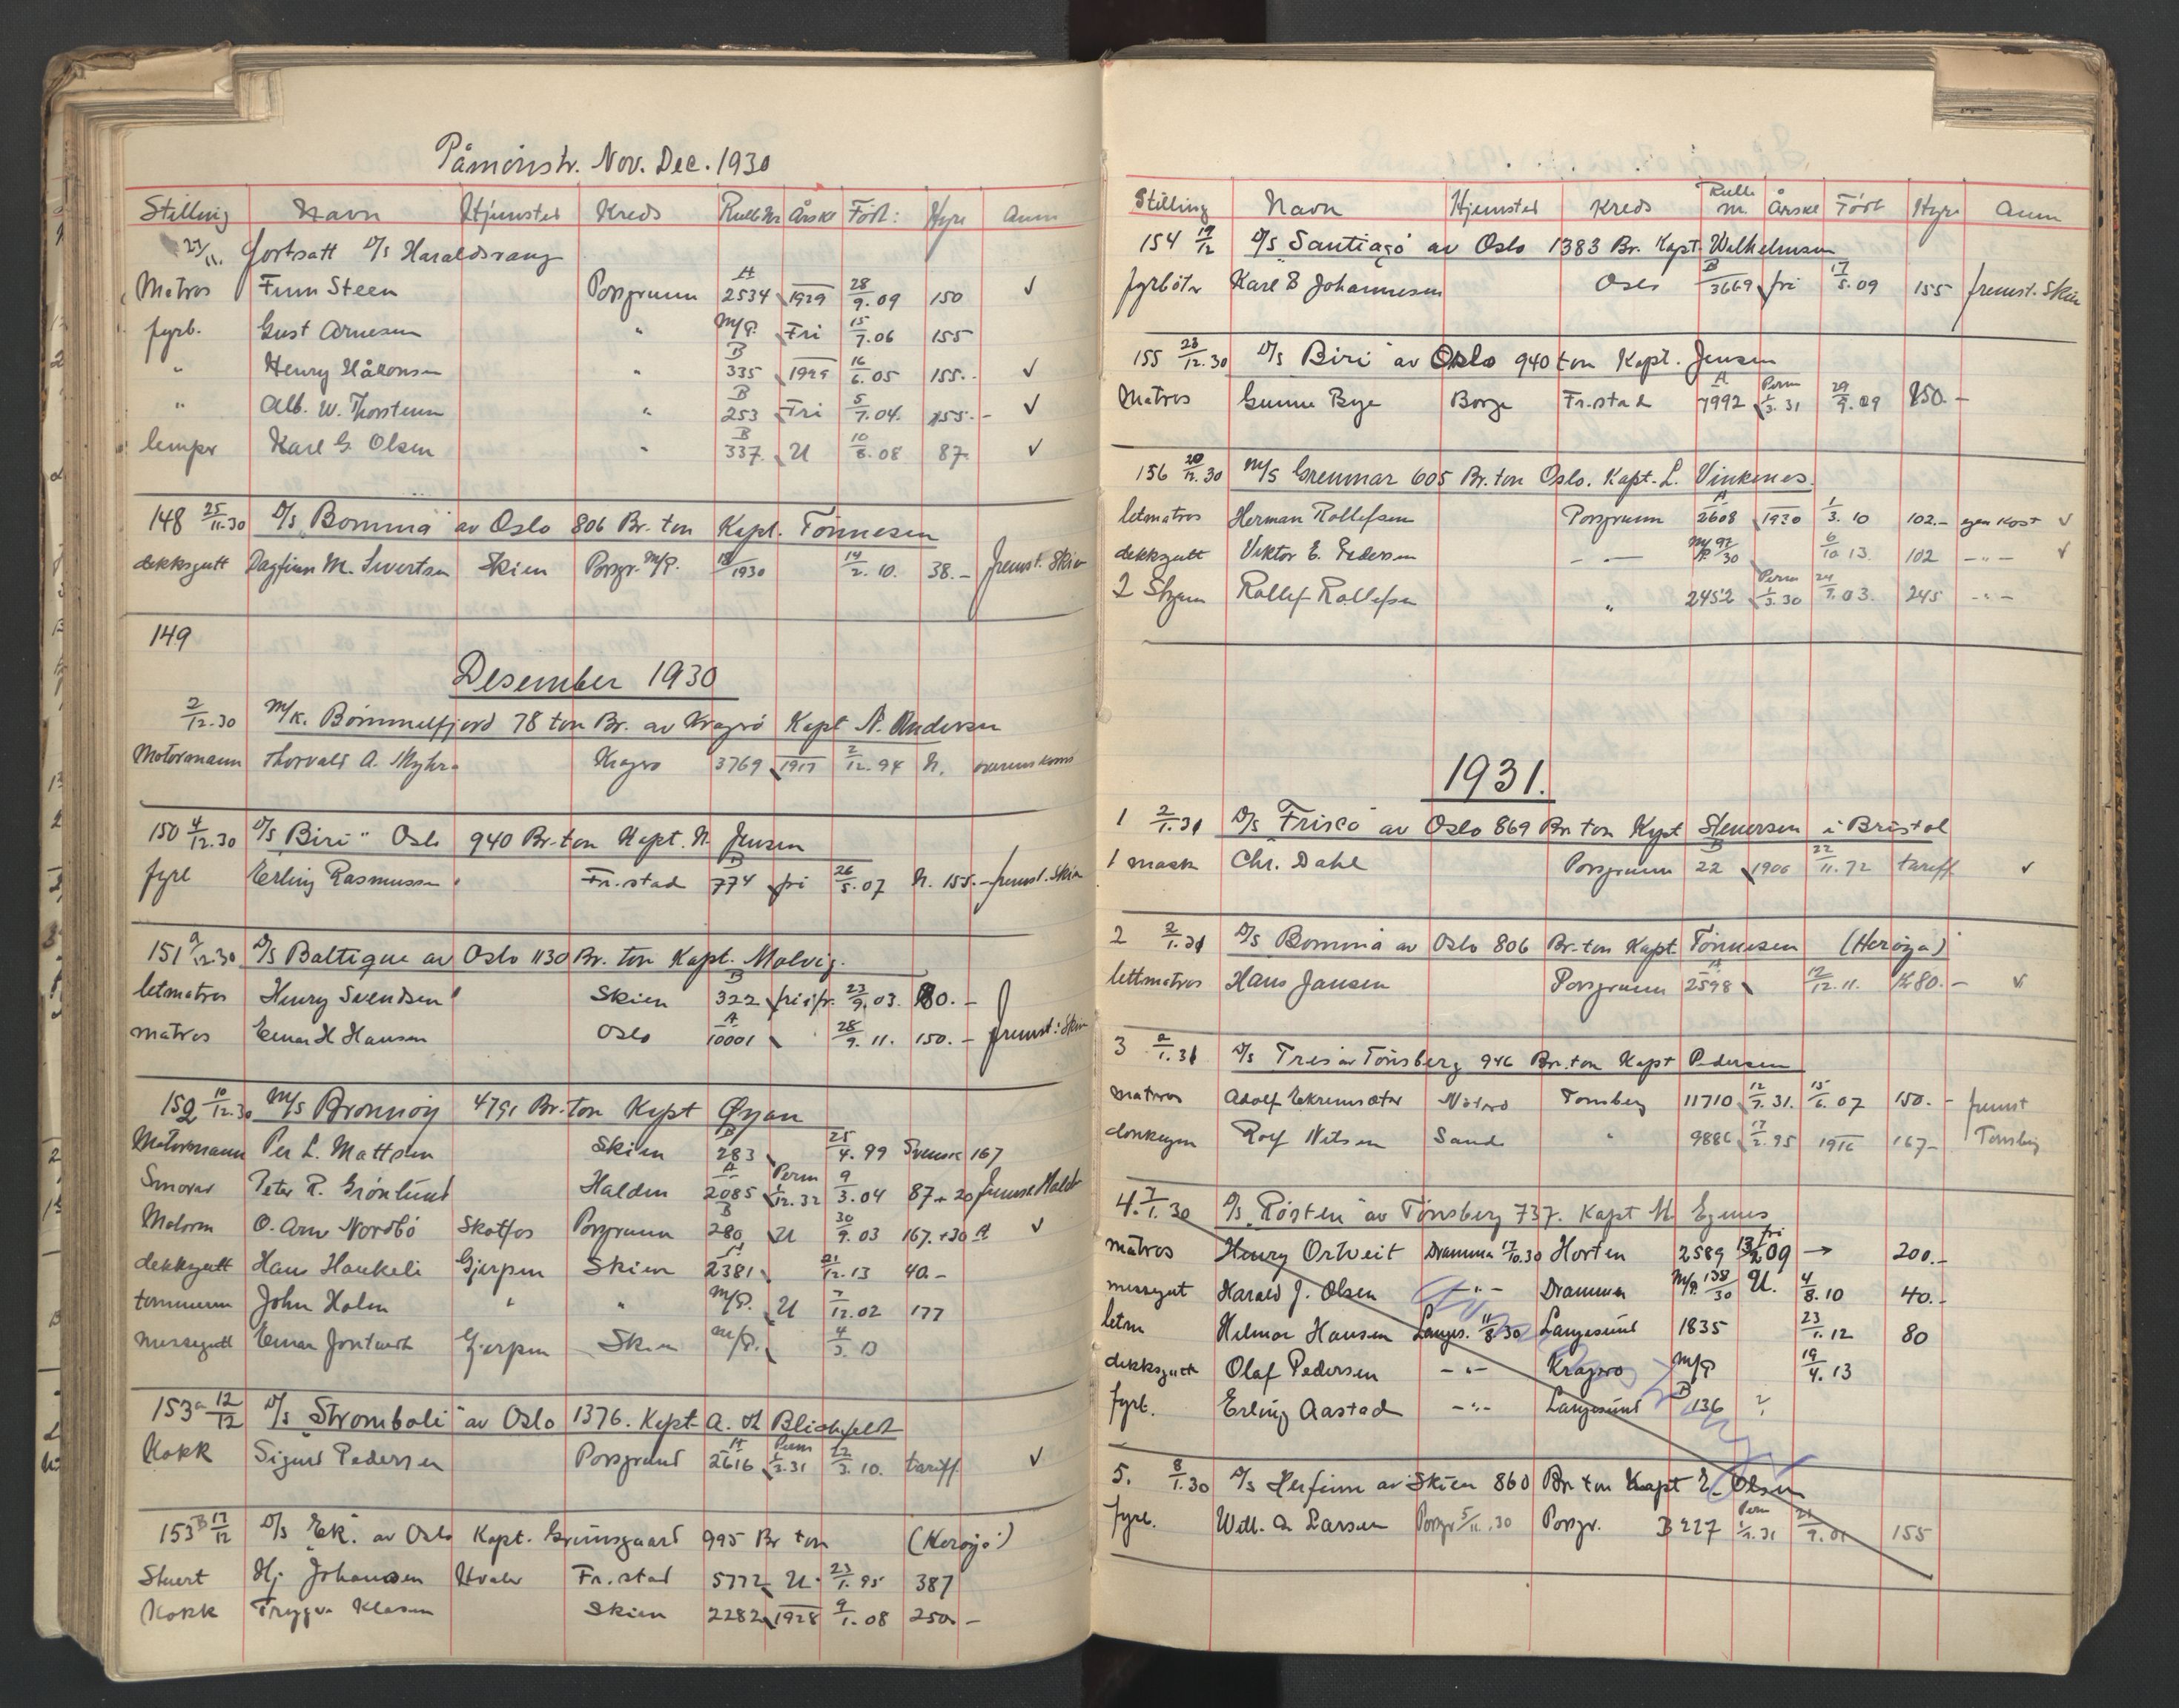 Påmönstr. Nov. Dec. 1930
Stilling Navn Hjemsted Kreds Rulle Nr Årskl Födt: Hyre Anm
27/11. fortsatt D/S Haraldsvang
Matros Finn Steen Porsgrunn A 2534 1929 28/9.09 150 ✓
fyrb. Gust Arnesen " M/P. Fri 15/7.06 155
" Henry Håkonsen " B 335 1929 16/6.05 155.- ✓
" Alb. W. Thorstensen " B 253 Fri 5/7.04. 155.- ✓
lemper Karl G. Olsen " B 337. U 10/8.08 87- ✓
148 25/11.30 D/S "Bomma" av Oslo 806 Br. ton Kapt. Tönnesen
dekksgutt Dagfinn M. Sivertsen Skien Porsgr. M/P. 18/1930 14/2.10. 38.- fremst. Skien
149
Desember 1930
2/12.30 M/K. Bömmelfjord 78 ton Br. av Kragerö Kapt N. Andersen
Motormann Thorvald A. Myhre Kragerö 3769 1917 2/12.94 h. overenskoms
150 4/12.30 D/S "Biri" Oslo 940 Br. ton Kapt. N. Jensen
fyrb Erling Rasmussen Fr.stad B 774 fri 26/5.07 h. 155.- fremst. Skien
151 9/12.30 D/S Baltique av Oslo 1130 Br. ton Kapt. Malvig.
letmatros Henry Svendsen Skien B 322 fri i fr. 23/9.03. 80.-
matros Einar H Hansen Oslo A 10001 28/9.11. 150.- fremst: Skien
152 10/12.30 M/S Bronnöy 4791 Br. ton Kapt Öyan
Motormann Per L. Mattsen Skien B 283 25/4.99 Svensk 167
Smörer Peter R. Grönlund Halden A 2085 Perm 1/12.32 9/3.04 87+20 fremst. Halden
Motorm O. Arn Nordbö Skotfos Porsgrunn B 280 U 30/9.03 167.+30 A ✓
dekksgutt Hans Haukeli Gjerpen Skien A 2381 21/12.13 40.-
tömmerm John Holm " " M/P. U 7/12.02 177
messegutt Einar Gjerpen Skien M/P. 4/3.13
153a 12/12 D/S "Stromboli" av Oslo 1376. Kapt. A. H Blichfeldt
Kokk Sigurd Pedersen Porsgrund A 2616 Perm 1/3.31 12/3.10. tariff. ✓
153B 17/12 D/S "Ek". av Oslo Kapt. Grimsgaard 995 Br ton (Heröya)
Stuert Hj Johansen Hvaler Fr.stad 5772 U. 23/1.95 387
Kokk Trygve Klasen Skien 2282 1928 9/1.08 250.-
Stilling Navn Hjemsted Kreds Rulle nr. Årskl Födt Hyre Anm
154 19/12 D/S "Santiago" av Oslo 1383 Br. Kapt. Wilhelmsen
fyrböter Karl E Johannesen Oslo B 3669 fri 17/5.09 155 fremst. Skien
155 23/12.30 D/S "Biri" av Oslo 940 ton Kapt. Jensen
Matros Gunnar Bye Borge Fr.stad A 7992 Perm 1/3.31 29/9.09 150.-
156 20/12.30 M/S Grenmar 605 Br. ton Oslo. Kapt. L. Vinkenes.
letmatros Herman Rollefsen Porsgrunn A 2608 1930 1/3.10 102.- egen Kost ✓
dekksgutt Viktor E. Pedersen - " - M/P. 97/30 6/10 13. 102 - " - ✓
2 Styrm Rollef Rollefsen " 2452 Perm 1/3.30 24/7.03. 245 - " -
1931.
1 2/1.31 D/S "Frisco" av Oslo 869 Br. ton Kapt Steuersen i Bristol
1 mask Chr. Dahl Porsgrunn B 22 1906 22/11.72 tariff ✓
2 2/1.31 D/S Bomma av Oslo 806 Br. ton Kapt. Tönnesen (Heröya)
lettmatros Hans Jansen Porsgrunn A 2598 12/12.11. Kr 80.- ✓
3 2/1.31 D/S Tres av Tönsberg 946 Br. ton Kapt Pedersen
matros Adolf Ekremsæter Nöterö Tönsberg 11710 12/7.31. 15/6.07 150.- fremst
donkeym Rolf Nilsen Sande " 9886 17/2.95 1916 167- Tönsberg
4. 7/1.30 D/S "Rösten" av Tönsberg 737. Kapt M. Egenes
matros Henry Ortveit Drammen 17/10.30 Horten 2589 13/2 09 fri → 200.-
messegut Harald J. Olsen - " - Drammen M/P. 138/30 U. 4/8.10 40.-
letm Hilmar Hansen Langes. 11/8 30 Langesund 1835 23/1.12 80
dekksgutt Olaf Pedersen - " - Kragerö M/P 19/4.13
fyrb. Erling Aastad - " - Langesund B 136 ?
5. 8/1.30 D/S Herfinn av Skien 860 Br. ton Kapt E. Olsen
fyrb. Will. A Larsen Porsgr 5/11.30 Porsgr. B 227 Perm 1/1.31 21/9.01 155